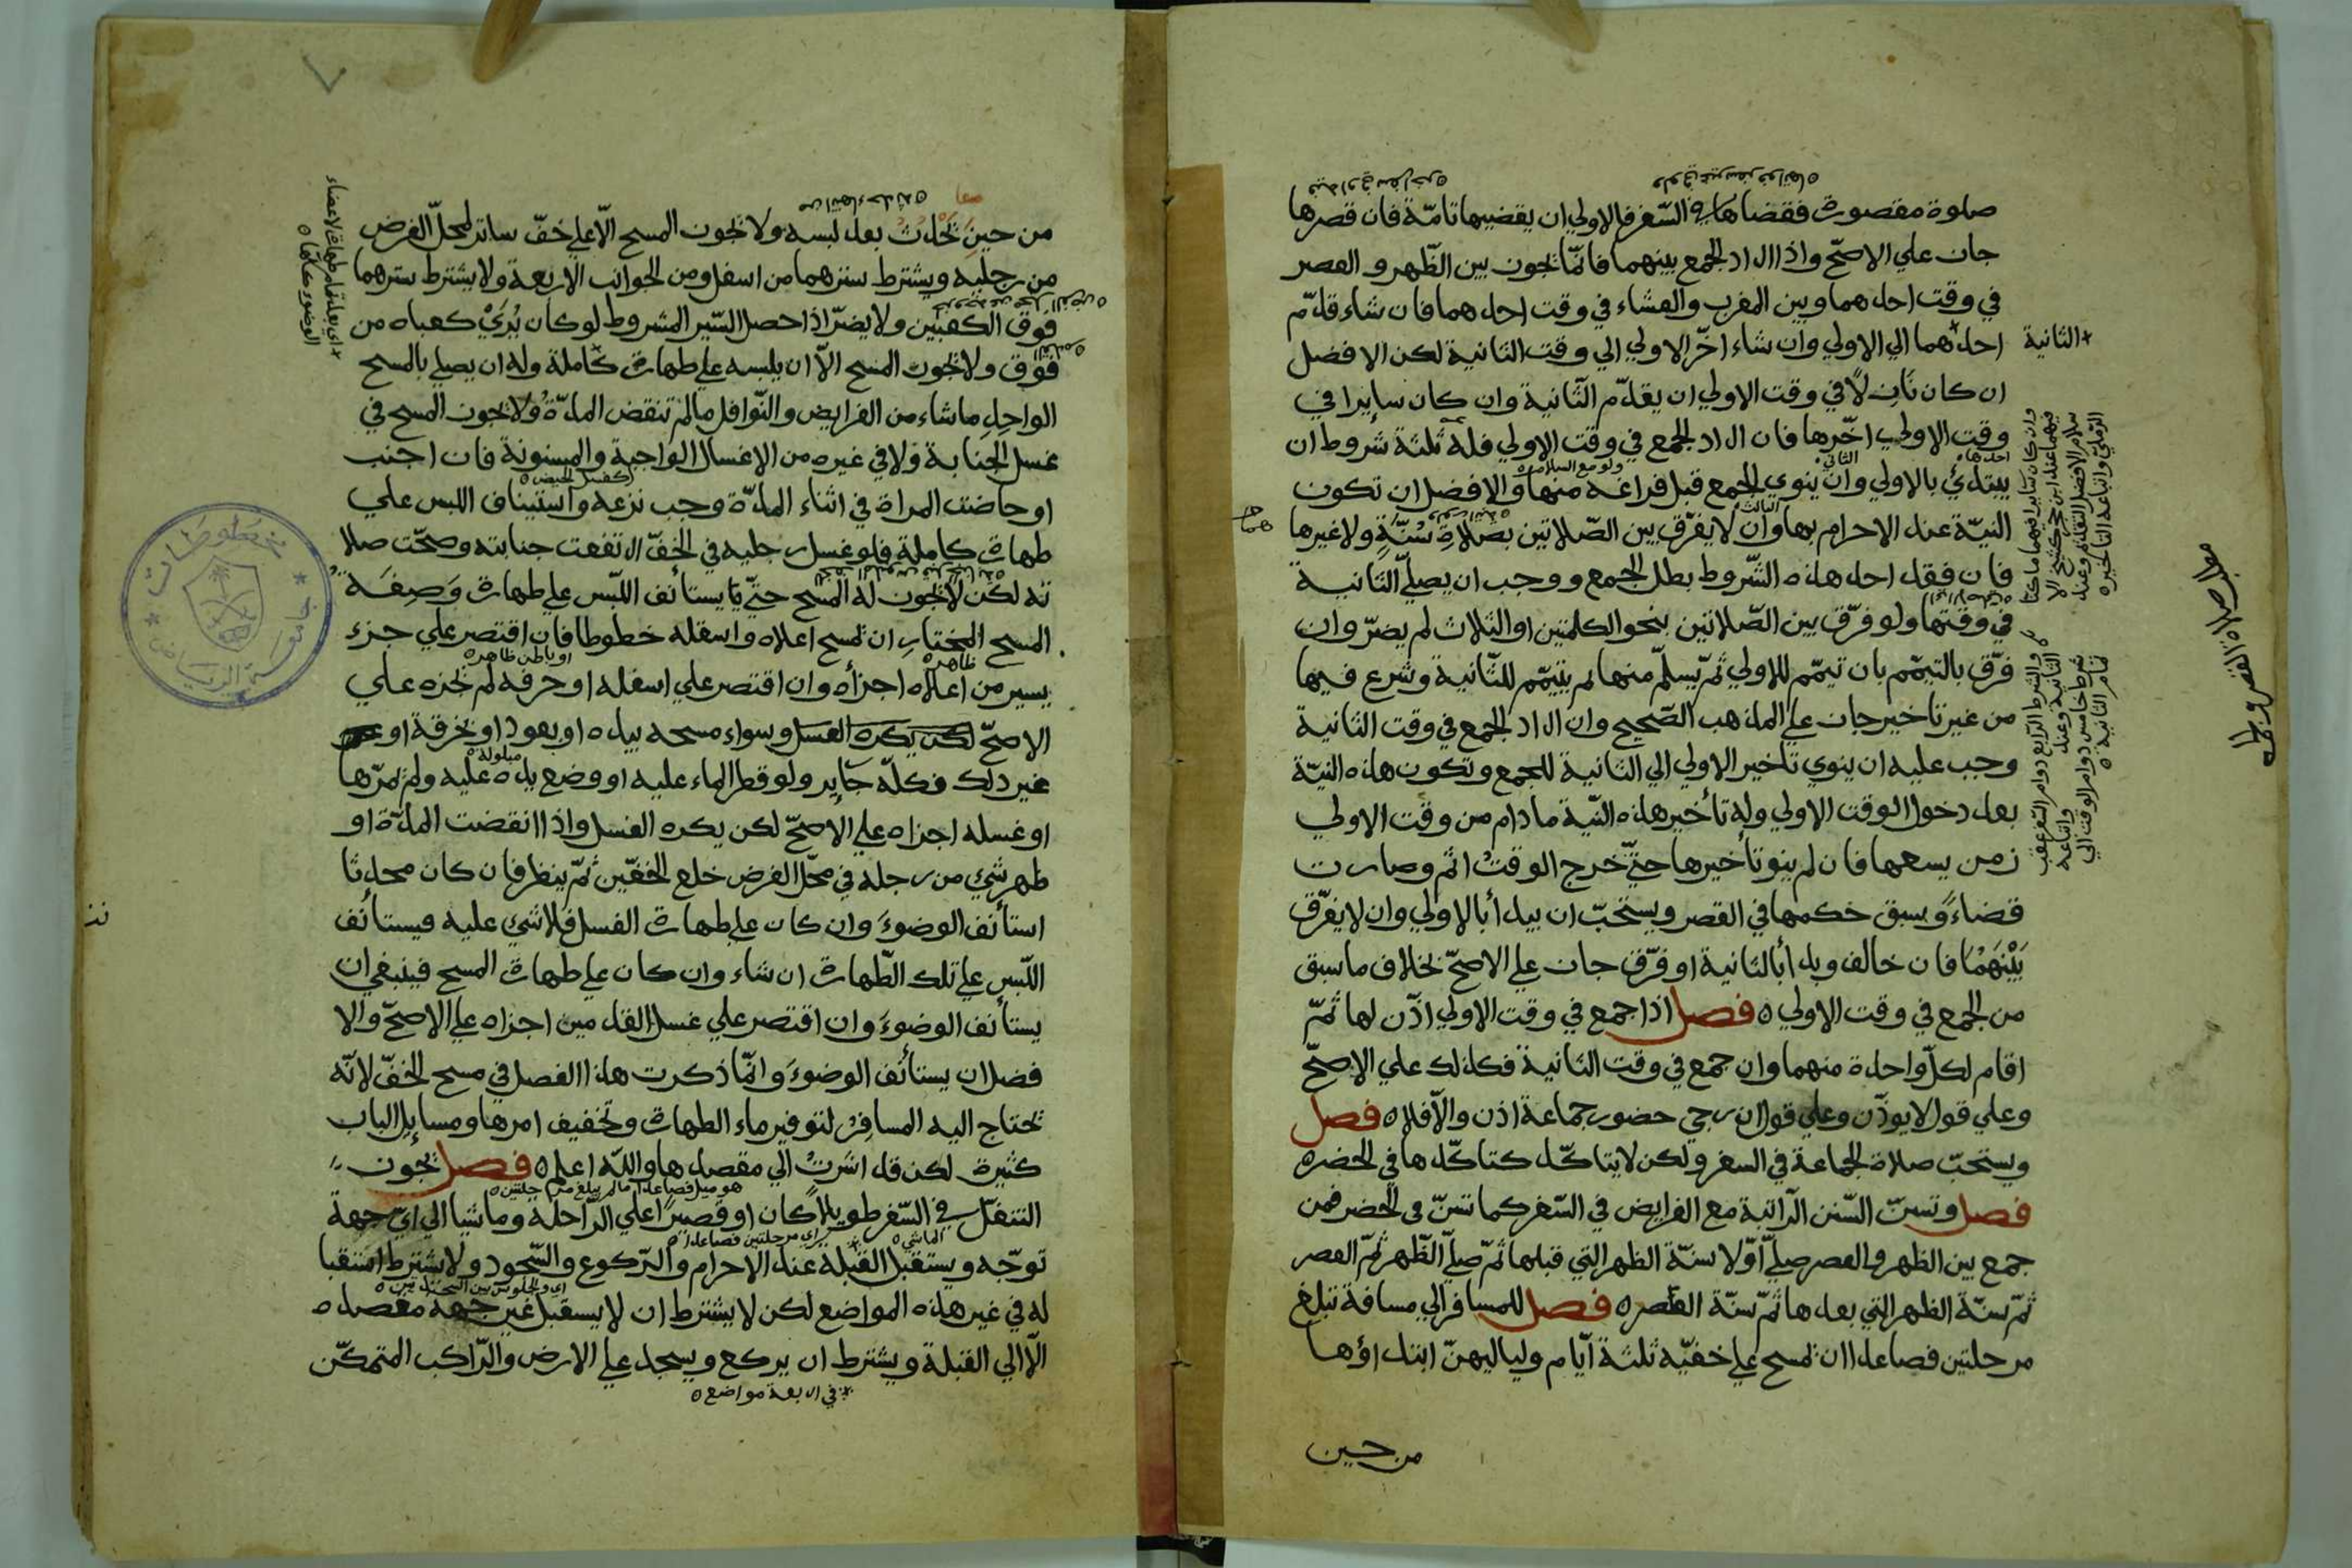 صلوة مقصورة فقضاها في السّفر فالاولي ان يقضيها تامّة فان قصرها
جاز علي الاصحّ واذا اراد الجمع بينهما فانّما يجوز بين الظّهر و العصر
في وقت احدهما وبين المغرب والعشاء في وقت احدهما فان شاء قدّم
احدهما الي الاولي وان شاء اخّر الاولي الي وقت الثانية لكن الافضل
الثانية
ان كان نازلًا في وقت الاولي ان يقدّم الثّانية وان كان سايرا في
وقت الاولي اخّرها فان اراد الجمع في وقت الاولي فله ثلثة شروط ان
احدها
الثاني
ولو مع السلام
يبتدئ بالاولي وان ينوي الجمع قبل فراغه منها والافضل ان تكون
الثالث
النيّة عند الاحرام بها وان لا يفرّق بين الصّلاتين بصلاةِ سُنّةٍ ولا غيرها
فان فقد احد هذه الشّروط بطل الجمع و وجب ان يصلّي الثّانية
في وقتها ولو فرّق بين الصّلاتين بنحو الكلمتين او الثلاث لم يضرّ وان
فرّق بالتيمّم بان تيمّم للاولي ثمّ يسلّم منها ثم يتيمّم للثّانية وشرع فيها
من غير تاخير جاز علي المذهب الصّحيح وان اراد الجمع في وقت الثانية
وجب عليه ان ينوي تاخير الاولي الي الثانية للجمع وتكون هذه النيّة
بعد دخول الوقت الاولي وله تأخير هذه النّية ما دام من وقت الاولي
زمن يسعها فان لم ينو تأخيرها حتّي خرج الوقتُ اثم وصارت
قضاءً وسبق حكمها في القصر ويستحبّ ان يبدأ بالاولي وان لا يفرّق
بَيْنَهُمَا فان خالف وبدأ بالثانية او فرّق جاز علي الاصحّ بخلاف ما سبق
من الجمع في وقت الاولي ه فصل اذا جمع في وقت الاولي اذّن لها ثمّ
اقام لكلّ واحدة منهما وان جمع في وقت الثانية فكذلك علي الاصحّ
وعلي قول لا يوذّن وعلي قول ان رجي حضور جماعة اذن والّا فلا ه فصل
ويستحبّ صلاة الجماعة في السفر ولكن لا يتاكّد كتاكّدها في الحضر ه
فصل وتسنّ السّنن الرّاتبة مع الفرايض في السّفر كما تسنّ في الحضر فمن
جمع بين الظهر والعصر صلّي اوّلا سنّة الظهر التي قبلها ثمّ صلّي الظّهر ثمّ العصر
ثمّ سنّة الظهر التي بعدها ثمّ سنّة العصر ه فصل للمسافر الي مسافة تبلغ
مرحلتين فصاعدا ان يمسح علي خفيّه ثلثة ايّام ولياليهنّ ابتداؤها
من حين
وان كان سايرا فيهما
والشرط الرابع دوام السفر
من حين يحدث بعد لبسه ولا يجوز المسح الّا علي خفّ ساتر لمحلّ الفرض
معا
من رجليه ويشترط سترهما من اسفل ومن الجوانب الاربعة ولا يشترط سترهما
فوق الكعبين ولا يضرّ اذا حصل السّتر المشروط لو كان يُريَ كعباه من
فوق ولا يجوز المسح الاّ ان يلبسه علي طهارة كاملة وله ان يصلي بالمسح
الواحدِ ما شاء من الفرايض والنّوافل ما لم تنقض المدّة ولا يجوز المسح في
غسل الجنابة ولا في غيره من الاغسال الواجبة والمسنونة فان اجنب
كغسل الحيض
او حاضت المراة في اثناء المدّة وجب نزعه واستيناف اللبس علي
طهارة كاملة فلو غسل رجليه في الخفّ ارتفعت جنابته وصحّت صلا
ته لكن لا يجوز له المسح حتّي يستأنف اللّبس علي طهارة وَصِفَة
المسح المختارِ ان يمسح اعلاه واسفله خطوطا فان اقتصر علي جزء
ظاهره
او باطن ظاهره
يسير من اعلاه اجزأه وان اقتصر علي اسفله او حرفه لم يجزه علي
الاصحّ لكن يكره الغسل وسواء مسحه بيده او بعود او بخرقة او
مبلولة
غير ذلك فكلّه جاير ولو قطر الماء عليه او وضع يده عليه ولم يمرّها
او غسله اجزاه علي الاصحّ لكن يكره الغسل واذا انقضت المدّة او
ظهر شيء من رجله في محلّ الفرض خلع الخفّين ثمّ ينظر فان كان محدثا
استأنف الوضوءَ وان كان علي طهارة الغسل فلا شيء عليه فيستأنف
اللّبس علي تلك الطّهارة ان شاء وان كان علي طهارة المسح فينبغي ان
يستأنف الوضوءَ وان اقتصر علي غسل القدمين اجزاه علي الاصحّ والا
فضل ان يستأنف الوضوءَ وانّما ذكرت هذا الفصل في مسح الخفّ لانّه
يحتاج اليه المسافِرُ لتوفير ماء الطهارة وتخفيف امرها ومسايل الباب
كثيرة لكن قد اشَرتُ الي مقصدها واللّه اعلم ه فصل يجوز
التنفّل في السّفر طويلاً كان او قصيرًا علي الرّاحلة وماشيا الي ايّ جهة
الماشي
اي مرحلتين فصاعدا
توجّه ويستقبل القبلة عند الاحرام والرّكوع والسّجود ولا يشترط استقبا
اي والجلوس بين السجدتين
له في غير هذه المواضع لكن لا يشترط ان لا يستقبل غير جهة مقصده
الاّ الي القبلة ويشترط ان يركع ويسجد علي الارض والرّاكب المتمكّن
في اربعة مواضع
مخطوطات
جامعة الرياض